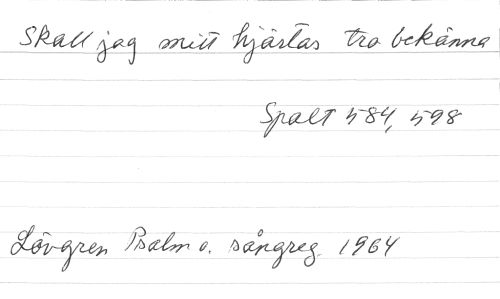 Skall jag mitt hjärtas tro bekänna
Spalt 584, 598
Lövgren Psalm o. sångreg. 1964